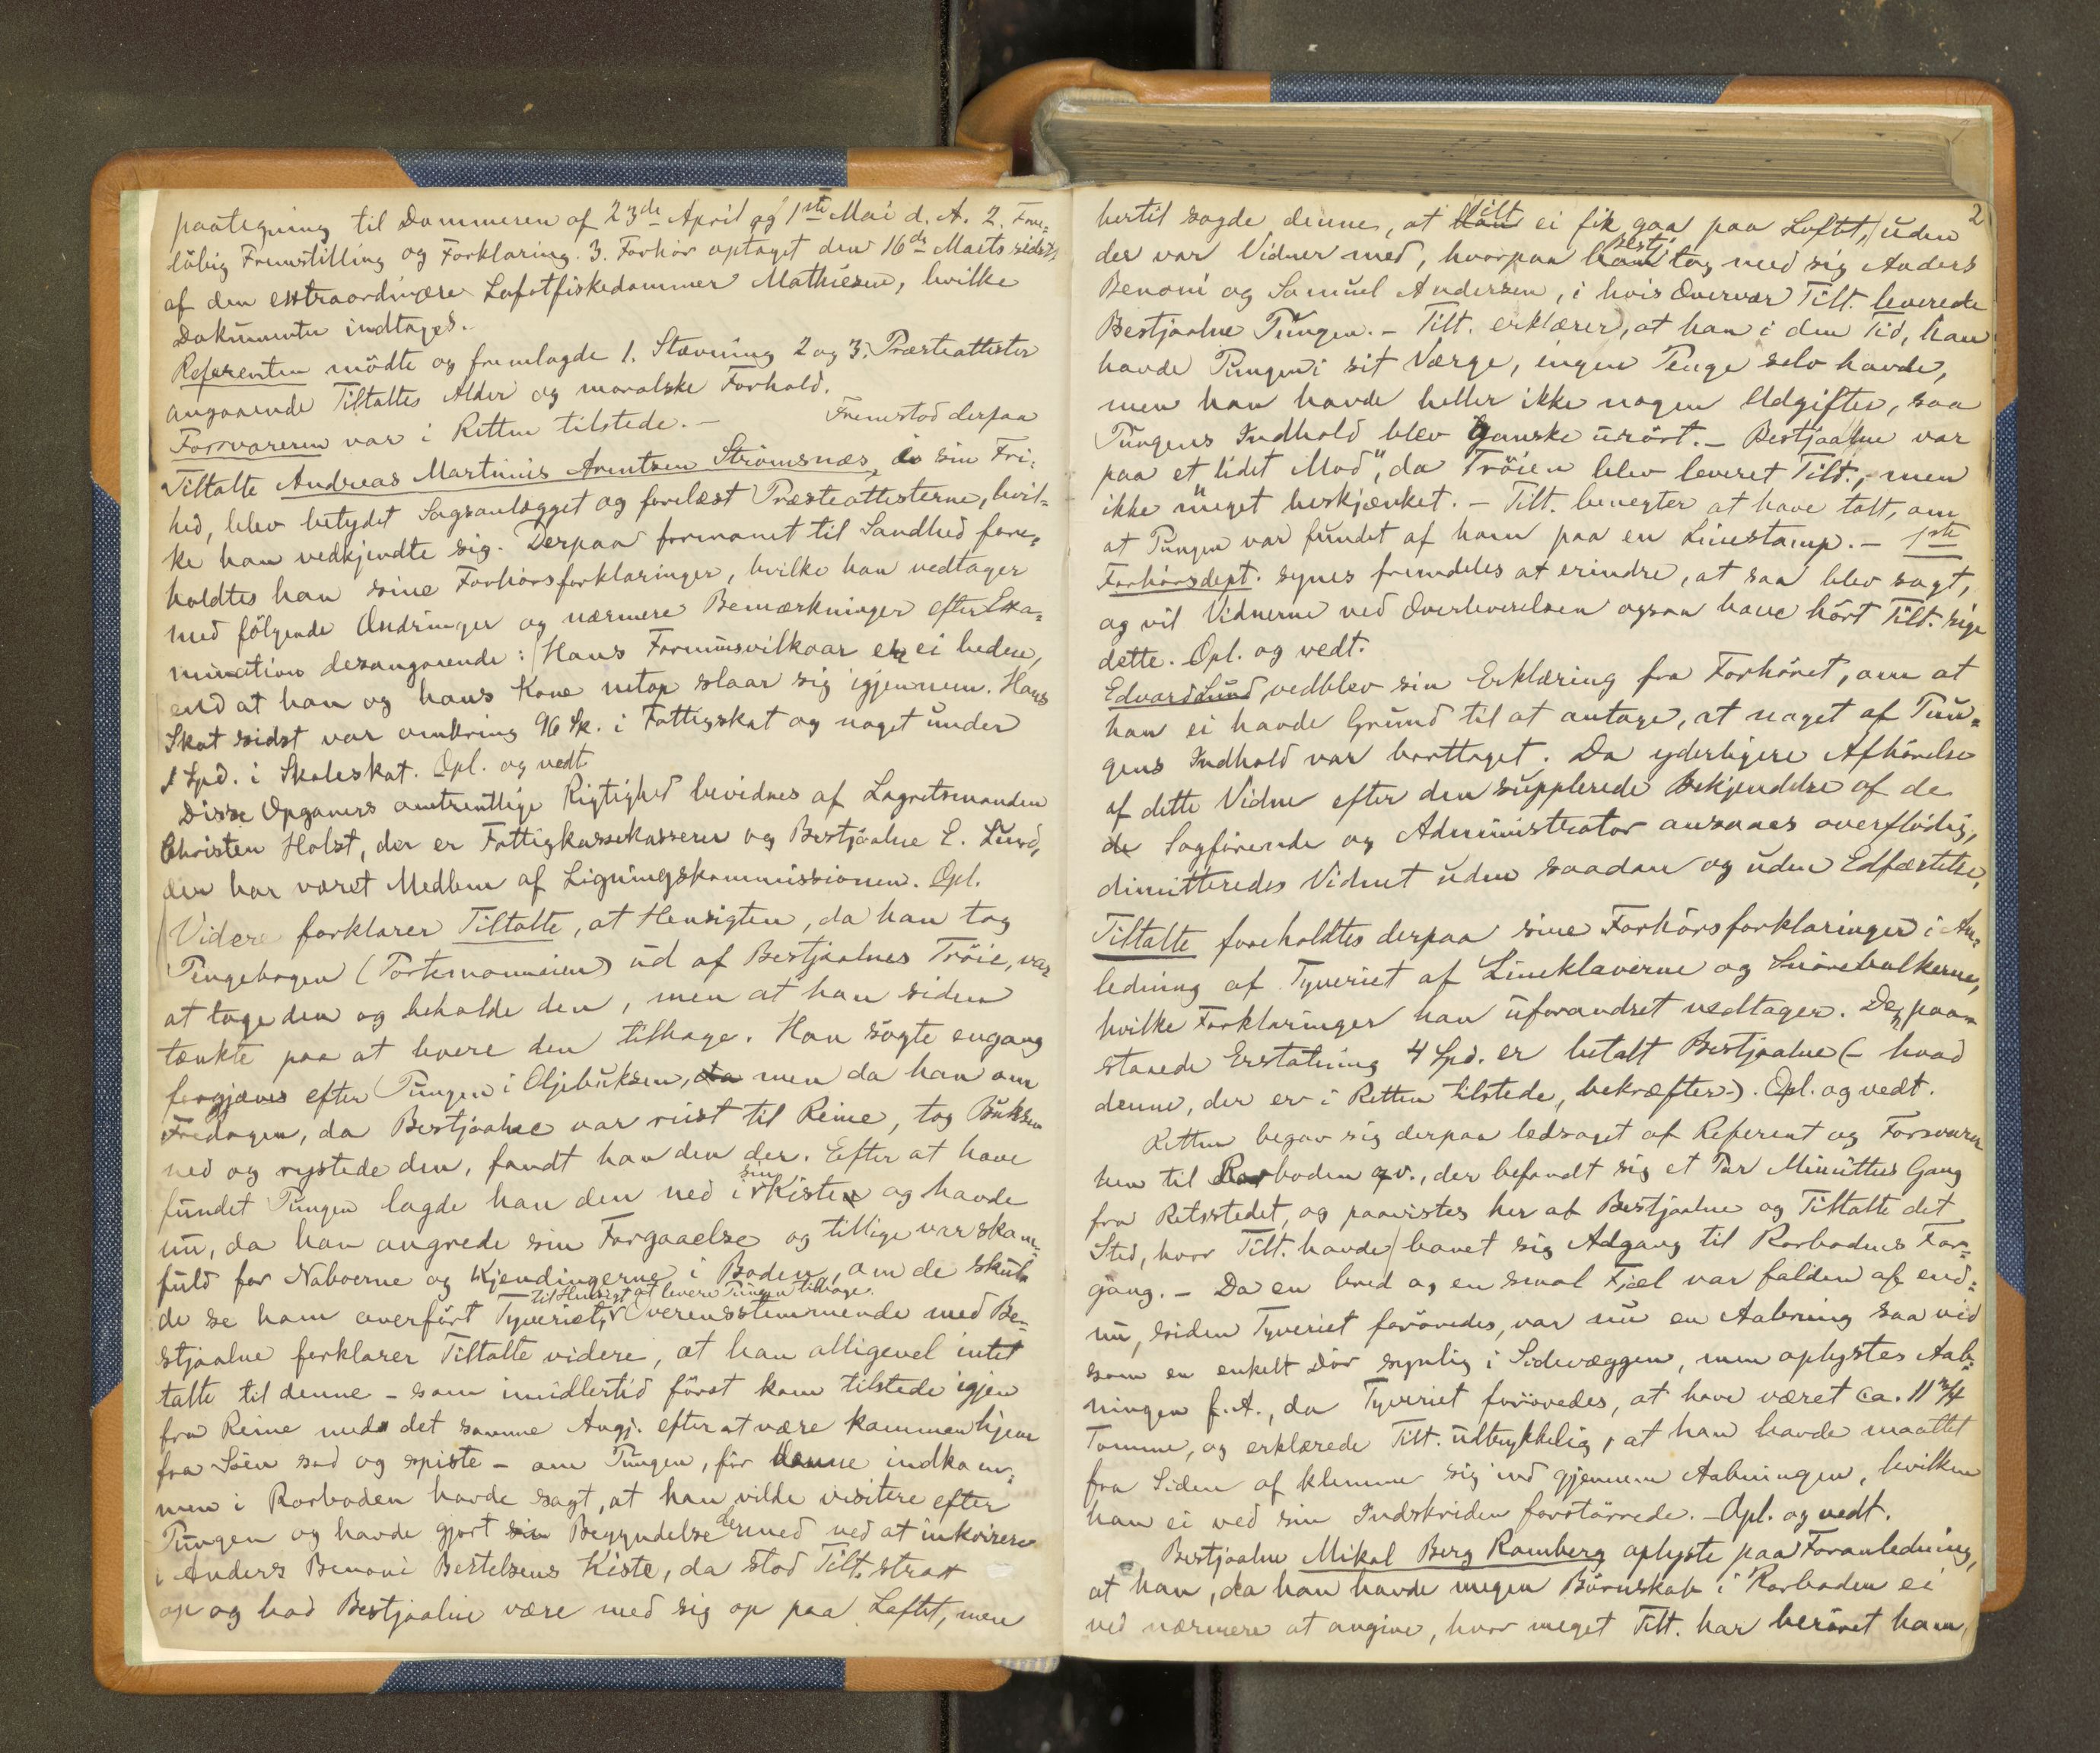 paategning til Dommeren af 23de April og 1ste Mai d. A. 2. Fore=
löbig Fremstilling og Forklaring. 3. Forhör optaget den 16de Marts sidstl.
af den extraordinære Lofotfiskedommer Mathiesen, hvilke
Dokumenter indtages.
Referenten mödte og fremlagde 1. Stævning 2 og 3. Præsteattester
angaaende Tiltaltes Alder og moralske Forhold.
Forsvareren var i Retten tilstede. – Fremstod derpaa
Tiltalte Andreas Martinus Arentsen Strömsnæs, i sin Fri=
hed, blev betydet Sagsanlægget og forelæst Præsteattesterne, hvil=
ke han vedkjendte sig. Derpaa formanet til Sandhed fore=
holdtes han sine Forhörsforklaringer, hvilke han vedtager
med fölgende Ændringer og nærmere Bemærkninger efter Exa=
mination desangaaende: Hans Formuesvilkaar er ei bedre,
end at han og hans Kone netop slaar sig igjennem. Hans
Skat sidst var omkring 96 Sk. i Fattigskat og noget under
1 Spd. i Skoleskat. Opl. og vedt.
Disse Opgavers omtrentlige Rigtighed bevidnes af Lagretsmanden
Christen Holst, der er Fattigkassekasserer og Bestjaalne E. Lund,
der har været Medlem af Ligningskommissionen. Opl.
Videre forklarer Tiltalte, at Hensigten, da han tog
Pengebogen (Portemonnaien) ud af Bestjaalnes Tröie, var
at tage den og beholde den, men at han siden
tænkte paa at levere den tilbage. Han sögte engang
forgjæves efter Pungen i Oljebuksen, da men da han om
Fredagen, da Bestjaalne var reist til Reine, tog Buksen
ned og rystede den, fandt han den der. Efter at have
fundet Pungen lagde han den ned i sin Kiste og havde
nu, da han angrede sin Forgaaelse og tillige var skam=
fuld for Naboerne og Kjendingerne i Boden, om de skul=
de se ham overfört Tyveriet, til Hensigt at levere Pungen tilbage. Overensstemmende med Be=
stjaalne forklarer Tiltalte videre, at han alligevel intet
talte til denne – som imidlertid först kom tilstede igjen
fra Reine medens det samme Angj. efter at være kommen hjem
fra Söen sad og spiste – om Pungen, för denne indkom=
men i Rorboden havde sagt, at han vilde visitere efter
Pungen og havde gjort sin Begyndelse dermed ved at inkvirere
i Anders Benoni Bertelsens Kiste, da stod Tilt. strax
op og bad Bestjaalne være med sig op paa Loftet, men
2
hertil sagde denne, at han Tilt ei fik gaa paa Loftet, uden
der var Vidner med, hvorpaa han Bestj tog med sig Anders
Benoni og Samuel Andersen, i hvis Overvær Tilt. leverede
Bestjaalne Pungen. – Tilt. erklærer, at han i den Tid, han
havde Pungen i sit Værge, ingen Penge selv havde,
men han havde heller ikke nogen Udgifter, saa
Pungens Indhold blev ganske urört. – Bestjaalne var
paa et lidet Mod", da Tröien blev leveret Tilt., men
ikke meget beskjænket. – Tilt. benegter at have talt, om
at Pungen var fundet af ham paa en Linestamp. – 1ste
Forhörsdept. synes fremdeles at erindre, at saa blev sagt,
og vil Vidnerne ved Overleverelsen ogsaa have hört Tilt. sige
dette. Opl. og vedt.
Edvard Lund, vedblev sin Erklæring fra Forhöret, om at
han ei havde Grund til at antage, at noget af Pun=
gens Indhold var borttaget. Da yderligere Afhörelse
af dette Vidne efter den supplerede Bekjendelse af de
de Sagförende og Administrator ansaaes overflödig,
dimitteredes Vidnet uden saadan og uden Edfæstelse.
Tiltalte foreholdtes derpaa sine Forhörsforklaringer i An=
ledning af Tyveriet af Lineklaverne og Snörebulkerne,
hvilke Forklaringer han uforandret vedtager. Den paa=
staaede Erstatning 4 Spd. er betalt Bestjaalne (– hvad
denne, der er i Retten tilstede, bekræfter–). Opl. og vedt.
Retten begav sig derpaa ledsaget af Referent og Forsvarer
hen til Rorboden qv., der befandt sig et Par Minutters Gang
fra Retsstedet, og paavistes her af Bestjaalne og Tiltalte det
Sted, hvor Tilt. havde banet sig Adgang til Rorbodens For=
gang. – Da en bred og en smal Fjæl var falden af end=
nu, siden Tyveriet forövedes, var nu en Aabning saa vid
som en enkelt Dör synlig i Sidevæggen, men oplystes Aab=
ningen f. A., da Tyveriet forövedes, at have været ca. 11 3/4
Tomme, og erklærede Tilt. udtrykkelig, at han havde maattet
fra Siden af klemme sig ind gjennem Aabningen, hvilken
han ei ved sin Indskriden forstörrede. – Opl. og vedt.
Bestjaalne Mikal Berg Ramberg oplyste paa Foranledning,
at han, da han havde megen Börnskab i Rorboden ei
ved nærmere at angive, hvor meget Tilt. har berövet ham,